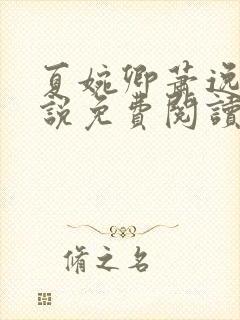 夏婉卿蕭逸
說免費閱讀
脩之名